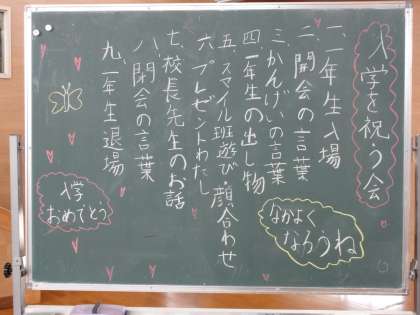 入学を祝う会
一、一年生入場
二、開会の言葉
三、かんげいの言葉
四、二年生の出し物
五、スマイル班遊び・顔合わせ
六、プレゼントわたし
七、校長先生のお話
八、閉会の言葉
九、一年生退場
なかよく
なろうね
入学
おめでとう